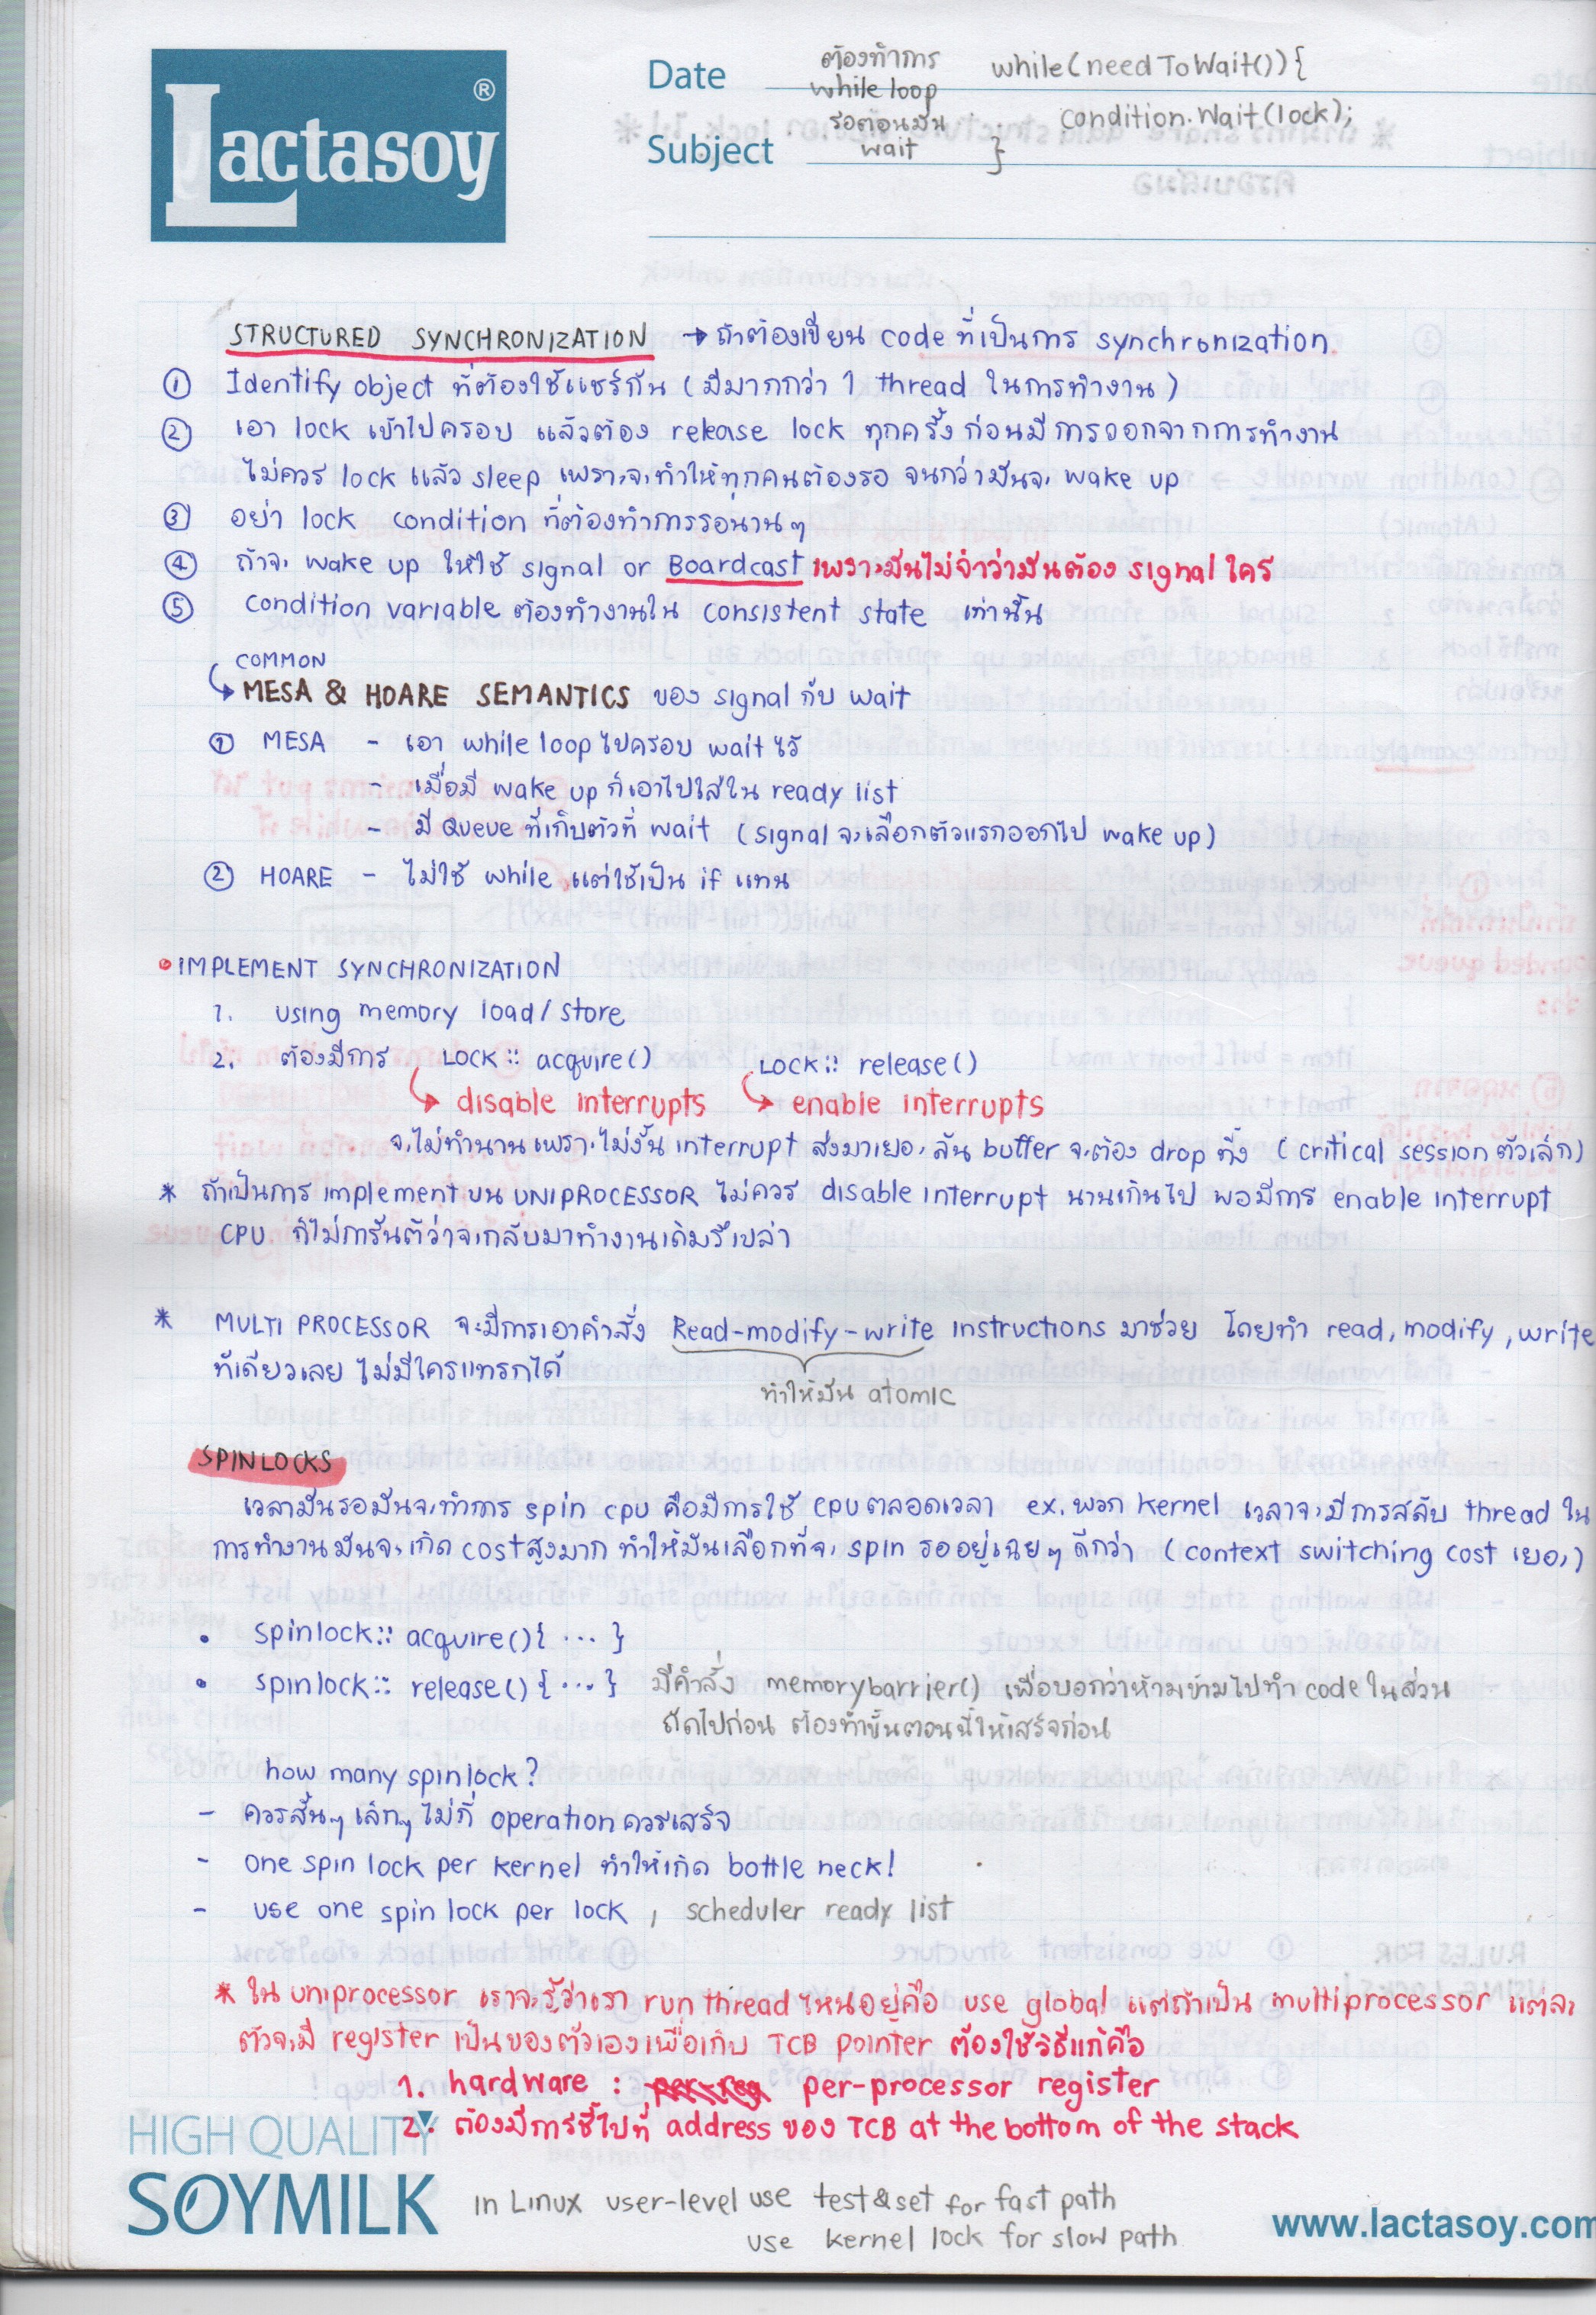 Lactasoy ®
Date
Subject
ต้องทำการ
while loop
รอตอนมัน
wait
while(needToWait()){
condition.Wait(lock);
}
STRUCTURED SYNCHRONIZATION → ถ้าต้องเขียน code ที่เป็นการ synchronization
① Identify object ที่ต้องใช้แชร์กัน (มีมากกว่า 1 thread ในการทำงาน)
② เอา lock เข้าไปครอบ แล้วต้อง release lock ทุกครั้งก่อนมีการออกจากการทำงาน
ไม่ควร lock แล้ว sleep เพราะจะทำให้ทุกคนต้องรอ จนกว่ามันจะ wake up
③ อย่า lock condition ที่ต้องทำการรอนานๆ
④ ถ้าจะ wake up ให้ใช้ signal or Boardcast เพราะมันไม่จำว่ามันต้อง signal ใคร
⑤ condition variable ต้องทำงานใน consistent state เท่านั้น
COMMON
↳ MESA & HOARE SEMANTICS ของ signal กับ wait
① MESA - เอา while loop ไปครอบ wait ไว้
- เมื่อมี wake up ก็เอาไปใส่ใน ready list
- มี Queue ที่เก็บตัวที่ wait (signal จะเลือกตัวแรกออกไป wake up)
② HOARE - ไม่ใช้ while แต่ใช้เป็น if แทน
• IMPLEMENT SYNCHRONIZATION
1. using memory load/store
2. ต้องมีการ LOCK :: acquire() LOCK :: release()
↳ disable interrupts ↳ enable interrupts
จะไม่ทำนานเพราะไม่งั้น interrupt ส่งมาเยอะ ล้น buffer จะต้อง drop ทิ้ง (critical session ตัวเล็ก)
* ถ้าเป็นการ implement บน UNIPROCESSOR ไม่ควร disable interrupt นานเกินไป พอมีการ enable interrupt
CPU ก็ไม่การันตีว่าจะกลับมาทำงานเดิมรึเปล่า
* MULTI PROCESSOR จะมีการเอาคำสั่ง Read-modify-write instructions มาช่วย โดยทำ read, modify, write
ทีเดียวเลย ไม่มีใครแทรกได้
ทำให้มัน atomic
SPINLOCKS
เวลามันรอมันจะทำการ spin cpu คือมีการใช้ CPU ตลอดเวลา ex. พวก kernel เวลาจะมีการสลับ thread ใน
การทำงานมันจะเกิด cost สูงมาก ทำให้มันเลือกที่จะ spin รออยู่เฉยๆดีกว่า (context switching cost เยอะ)
• Spinlock:: acquire(){ ... }
• Spinlock:: release(){ ... } มีคำสั่ง memorybarrier() เพื่อบอกว่าห้ามข้ามไปทำ code ในส่วน
ถัดไปก่อน ต้องทำขั้นตอนนี้ให้เสร็จก่อน
how many spinlock?
- ควรสั้นๆ เล็กๆ ไม่กี่ operation ควรเสร็จ
- one spin lock per kernel ทำให้เกิด bottle neck!
- use one spin lock per lock , scheduler ready list
* ใน uniprocessor เราจะรู้ว่าเรา run thread ไหนอยู่คือ use global แต่ถ้าเป็น multiprocessor แต่ละ
ตัวจะมี register เป็นของตัวเองเพื่อเก็บ TCB pointer ต้องใช้วิธีแก้คือ
1. hardware : per-processor register
2. ต้องมีการชี้ไปที่ address ของ TCB at the bottom of the stack
HIGH QUALITY
SOYMILK
in Linux user-level use test&set for fast path
use kernel lock for slow path
www.lactasoy.com